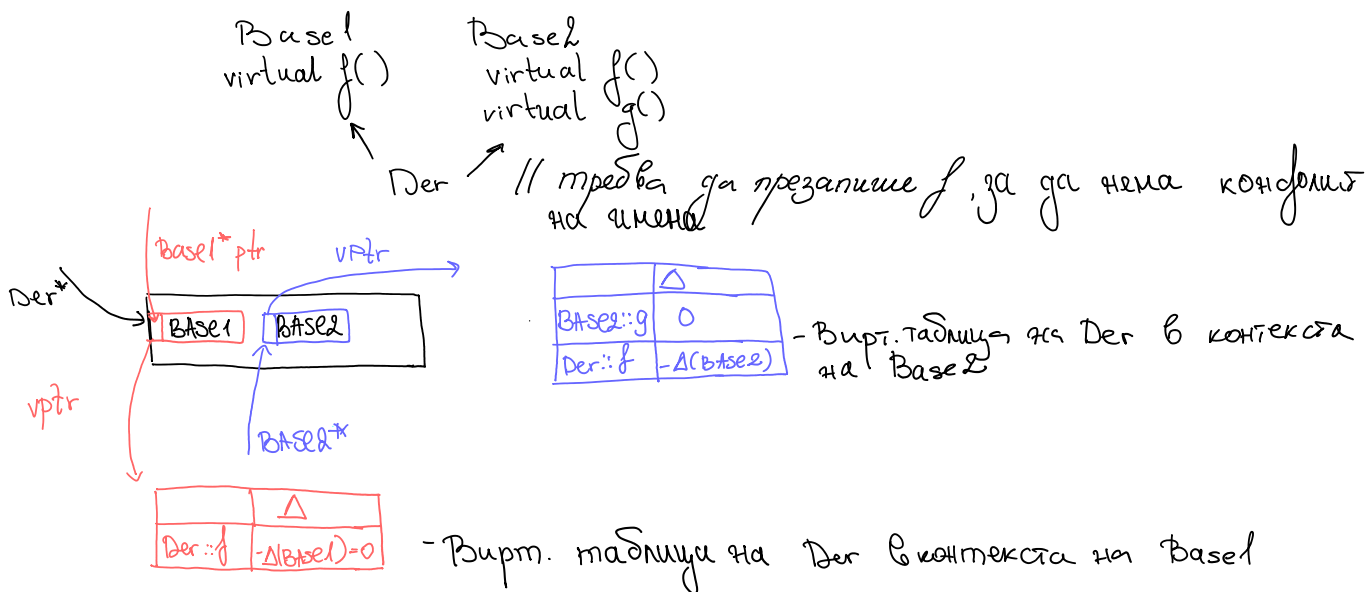 Base1
virtual f()
Base2
virtual f()
virtual g()
Der
// трябва да презапише f, за да няма конфликт
на имена
Base1* ptr
vptr
Der*
BASE1
BASE2
vptr
BASE2*
Δ
BASE2::g 0
Der::f -Δ(BASE2)
- Вирт. таблица на Der в контекста
на Base2
Δ
Der::f -Δ(BASE1)=0
- Вирт. таблица на Der в контекста на Base1